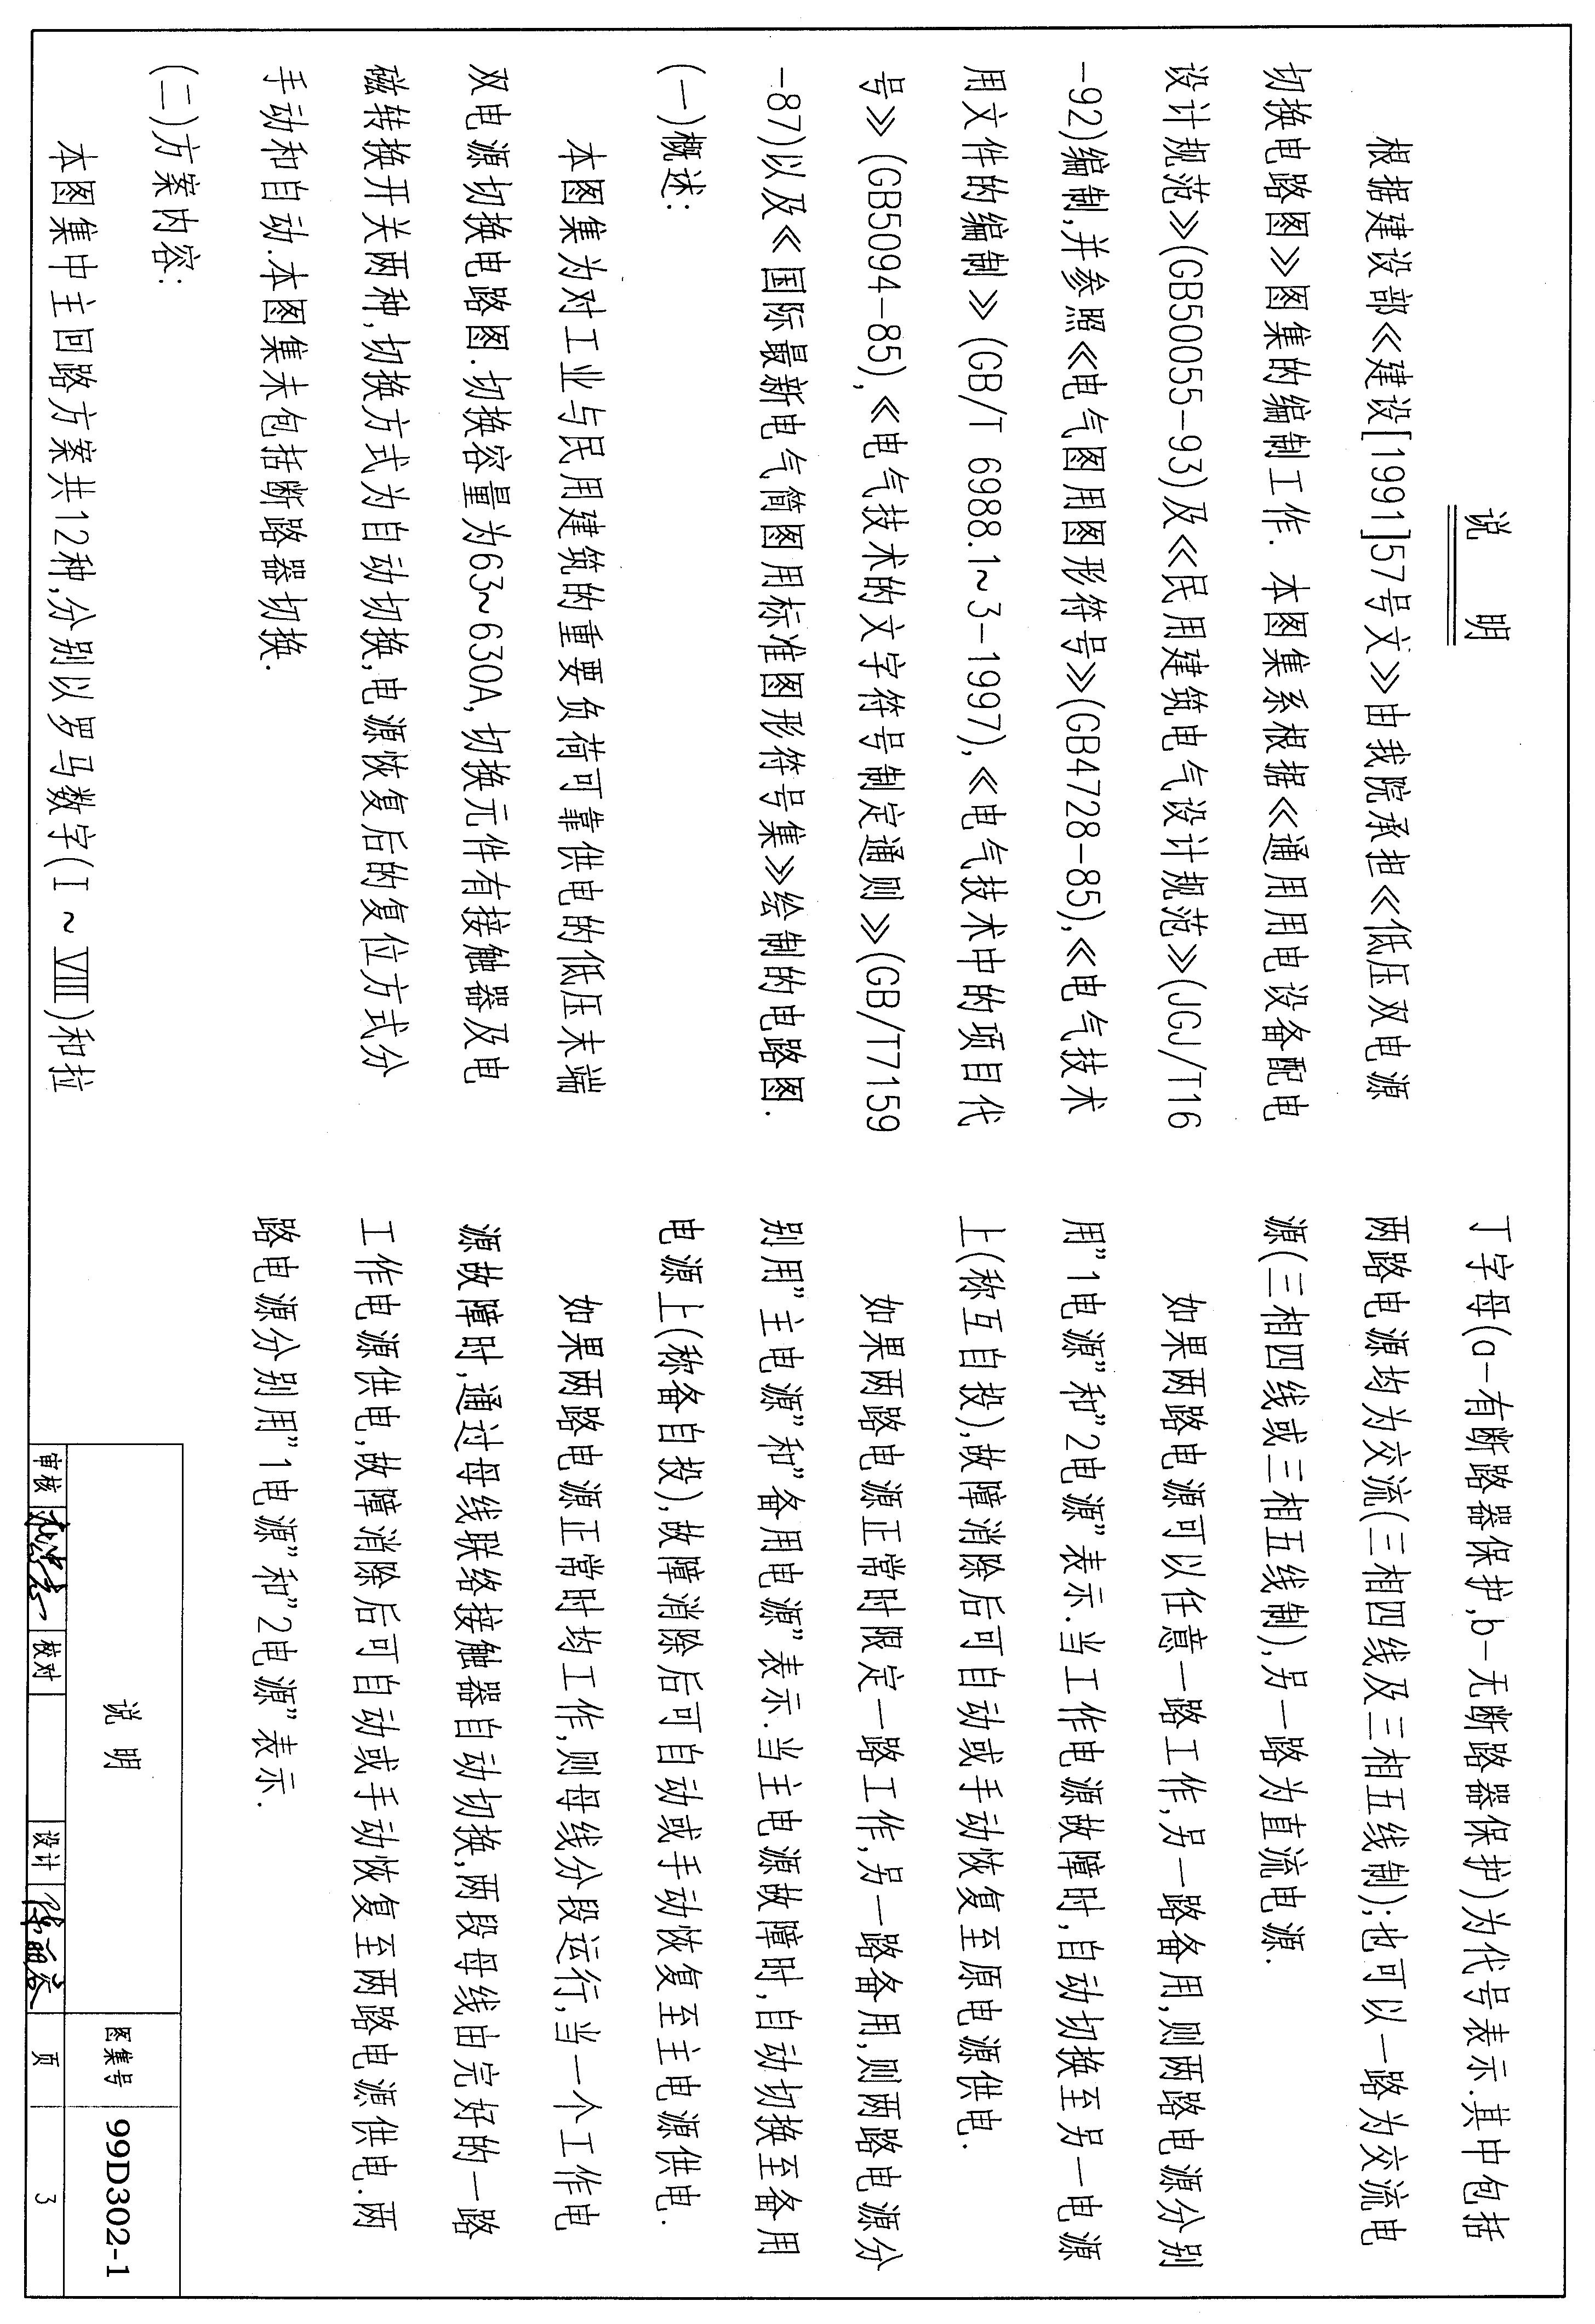 说 明
根据建设部≪建设[1991]57号文≫由我院承担≪低压双电源
切换电路图≫图集的编制工作. 本图集系根据≪通用用电设备配电
设计规范≫(GB50055-93)及≪民用建筑电气设计规范≫(JGJ/T16
-92)编制,并参照≪电气图用图形符号≫(GB4728-85),≪电气技术
用文件的编制≫(GB/T 6988.1~3-1997),≪电气技术中的项目代
号≫(GB5094-85),≪电气技术的文字符号制定通则≫(GB/T7159
-87)以及≪国际最新电气简图用标准图形符号集≫绘制的电路图.
(一)概述:
本图集为对工业与民用建筑的重要负荷可靠供电的低压末端
双电源切换电路图.切换容量为63~630A,切换元件有接触器及电
磁转换开关两种,切换方式为自动切换,电源恢复后的复位方式分
手动和自动.本图集未包括断路器切换.
(二)方案内容:
本图集中主回路方案共12种,分别以罗马数字(I ~ VIII)和拉
丁字母(a-有断路器保护,b-无断路器保护)为代号表示.其中包括
两路电源均为交流(三相四线及三相五线制);也可以一路为交流电
源(三相四线或三相五线制),另一路为直流电源.
如果两路电源可以任意一路工作,另一路备用,则两路电源分别
用"1电源"和"2电源"表示.当工作电源故障时,自动切换至另一电源
上(称互自投),故障消除后可自动或手动恢复至原电源供电.
如果两路电源正常时限定一路工作,另一路备用,则两路电源分
别用"主电源"和"备用电源"表示.当主电源故障时,自动切换至备用
电源上(称备自投),故障消除后可自动或手动恢复至主电源供电.
如果两路电源正常时均工作,则母线分段运行,当一个工作电
源故障时,通过母线联络接触器自动切换,两段母线由完好的一路
工作电源供电,故障消除后可自动或手动恢复至两路电源供电.两
路电源分别用"1电源"和"2电源"表示.
说 明
图集号 99D302-1
审核 校对 设计 页 3